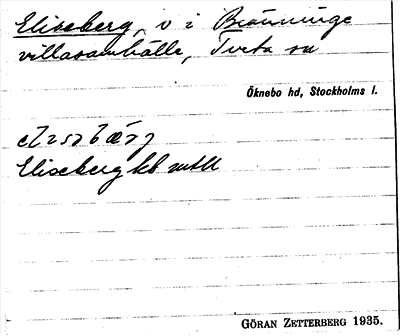 Eliseberg, v i Bränninge
villasamhälle, Tveta sn
Öknebo hd, Stockholms l.
Eliseberg kb mtll
GÖRAN ZETTERBERG 1935.